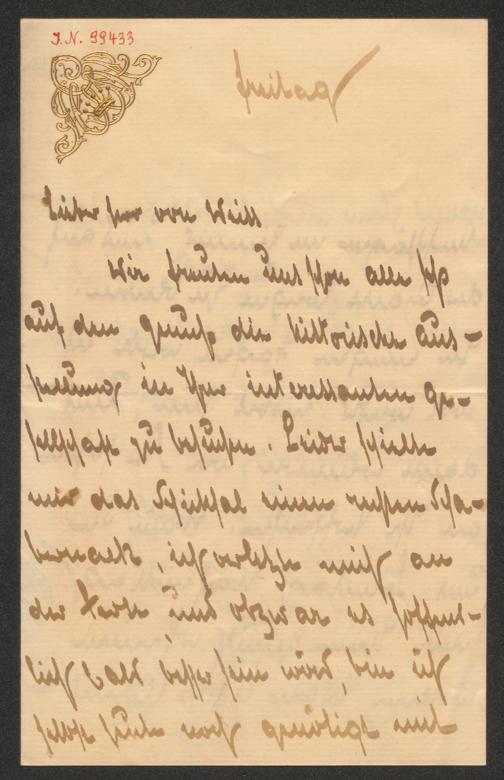 I.N. 99433
Freitag
Lieber Herr von Weill
Wir freuten uns schon alle sehr
auf den Genuß die historische Aus-
stellung in Ihrer interessanten Ge-
sellschaft zu besuchen. Leider spielte
mir das Schicksal einen Scha-
bernack, ich verletzte mich an
der Ferse und obzwar es hoffent-
lich bald besser sein wird, bin ich
heute noch genötigt mit